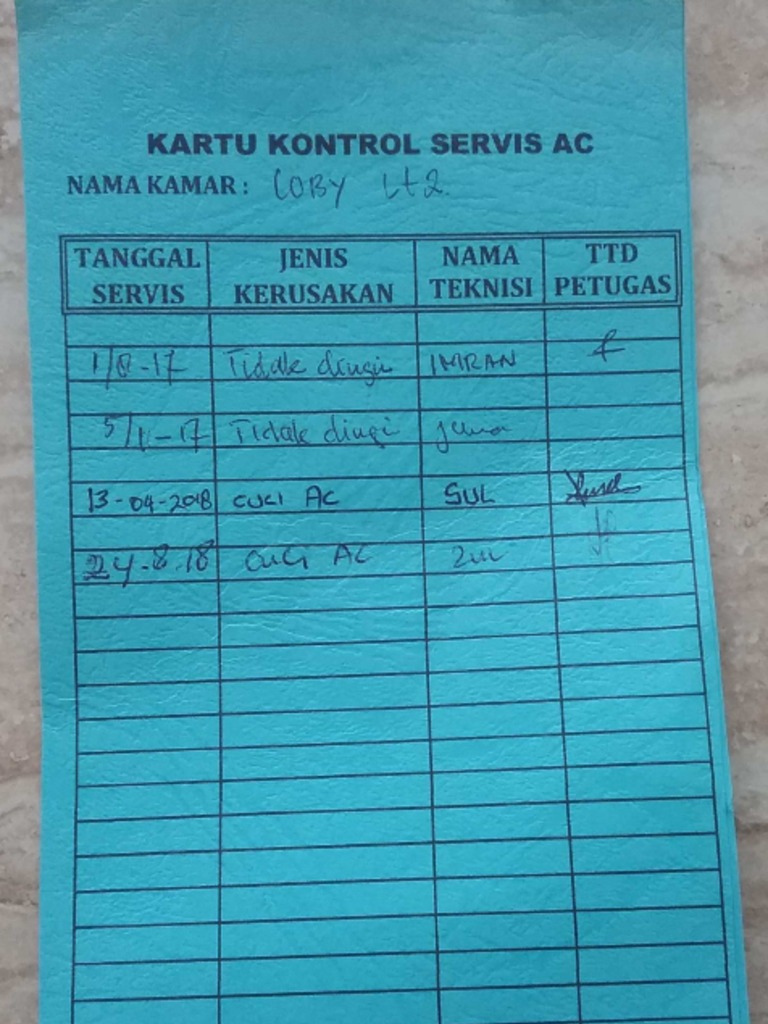 KARTU KONTROL SERVIS AC
NAMA KAMAR : LOBY Lt2.
TANGGAL SERVIS JENIS KERUSAKAN NAMA TEKNISI TTD PETUGAS
1/8-17 Tidak dingin IMRAN
Tidak dingi
13-04-2018 CUCI AC SUL
24-8-18 CUCI AC